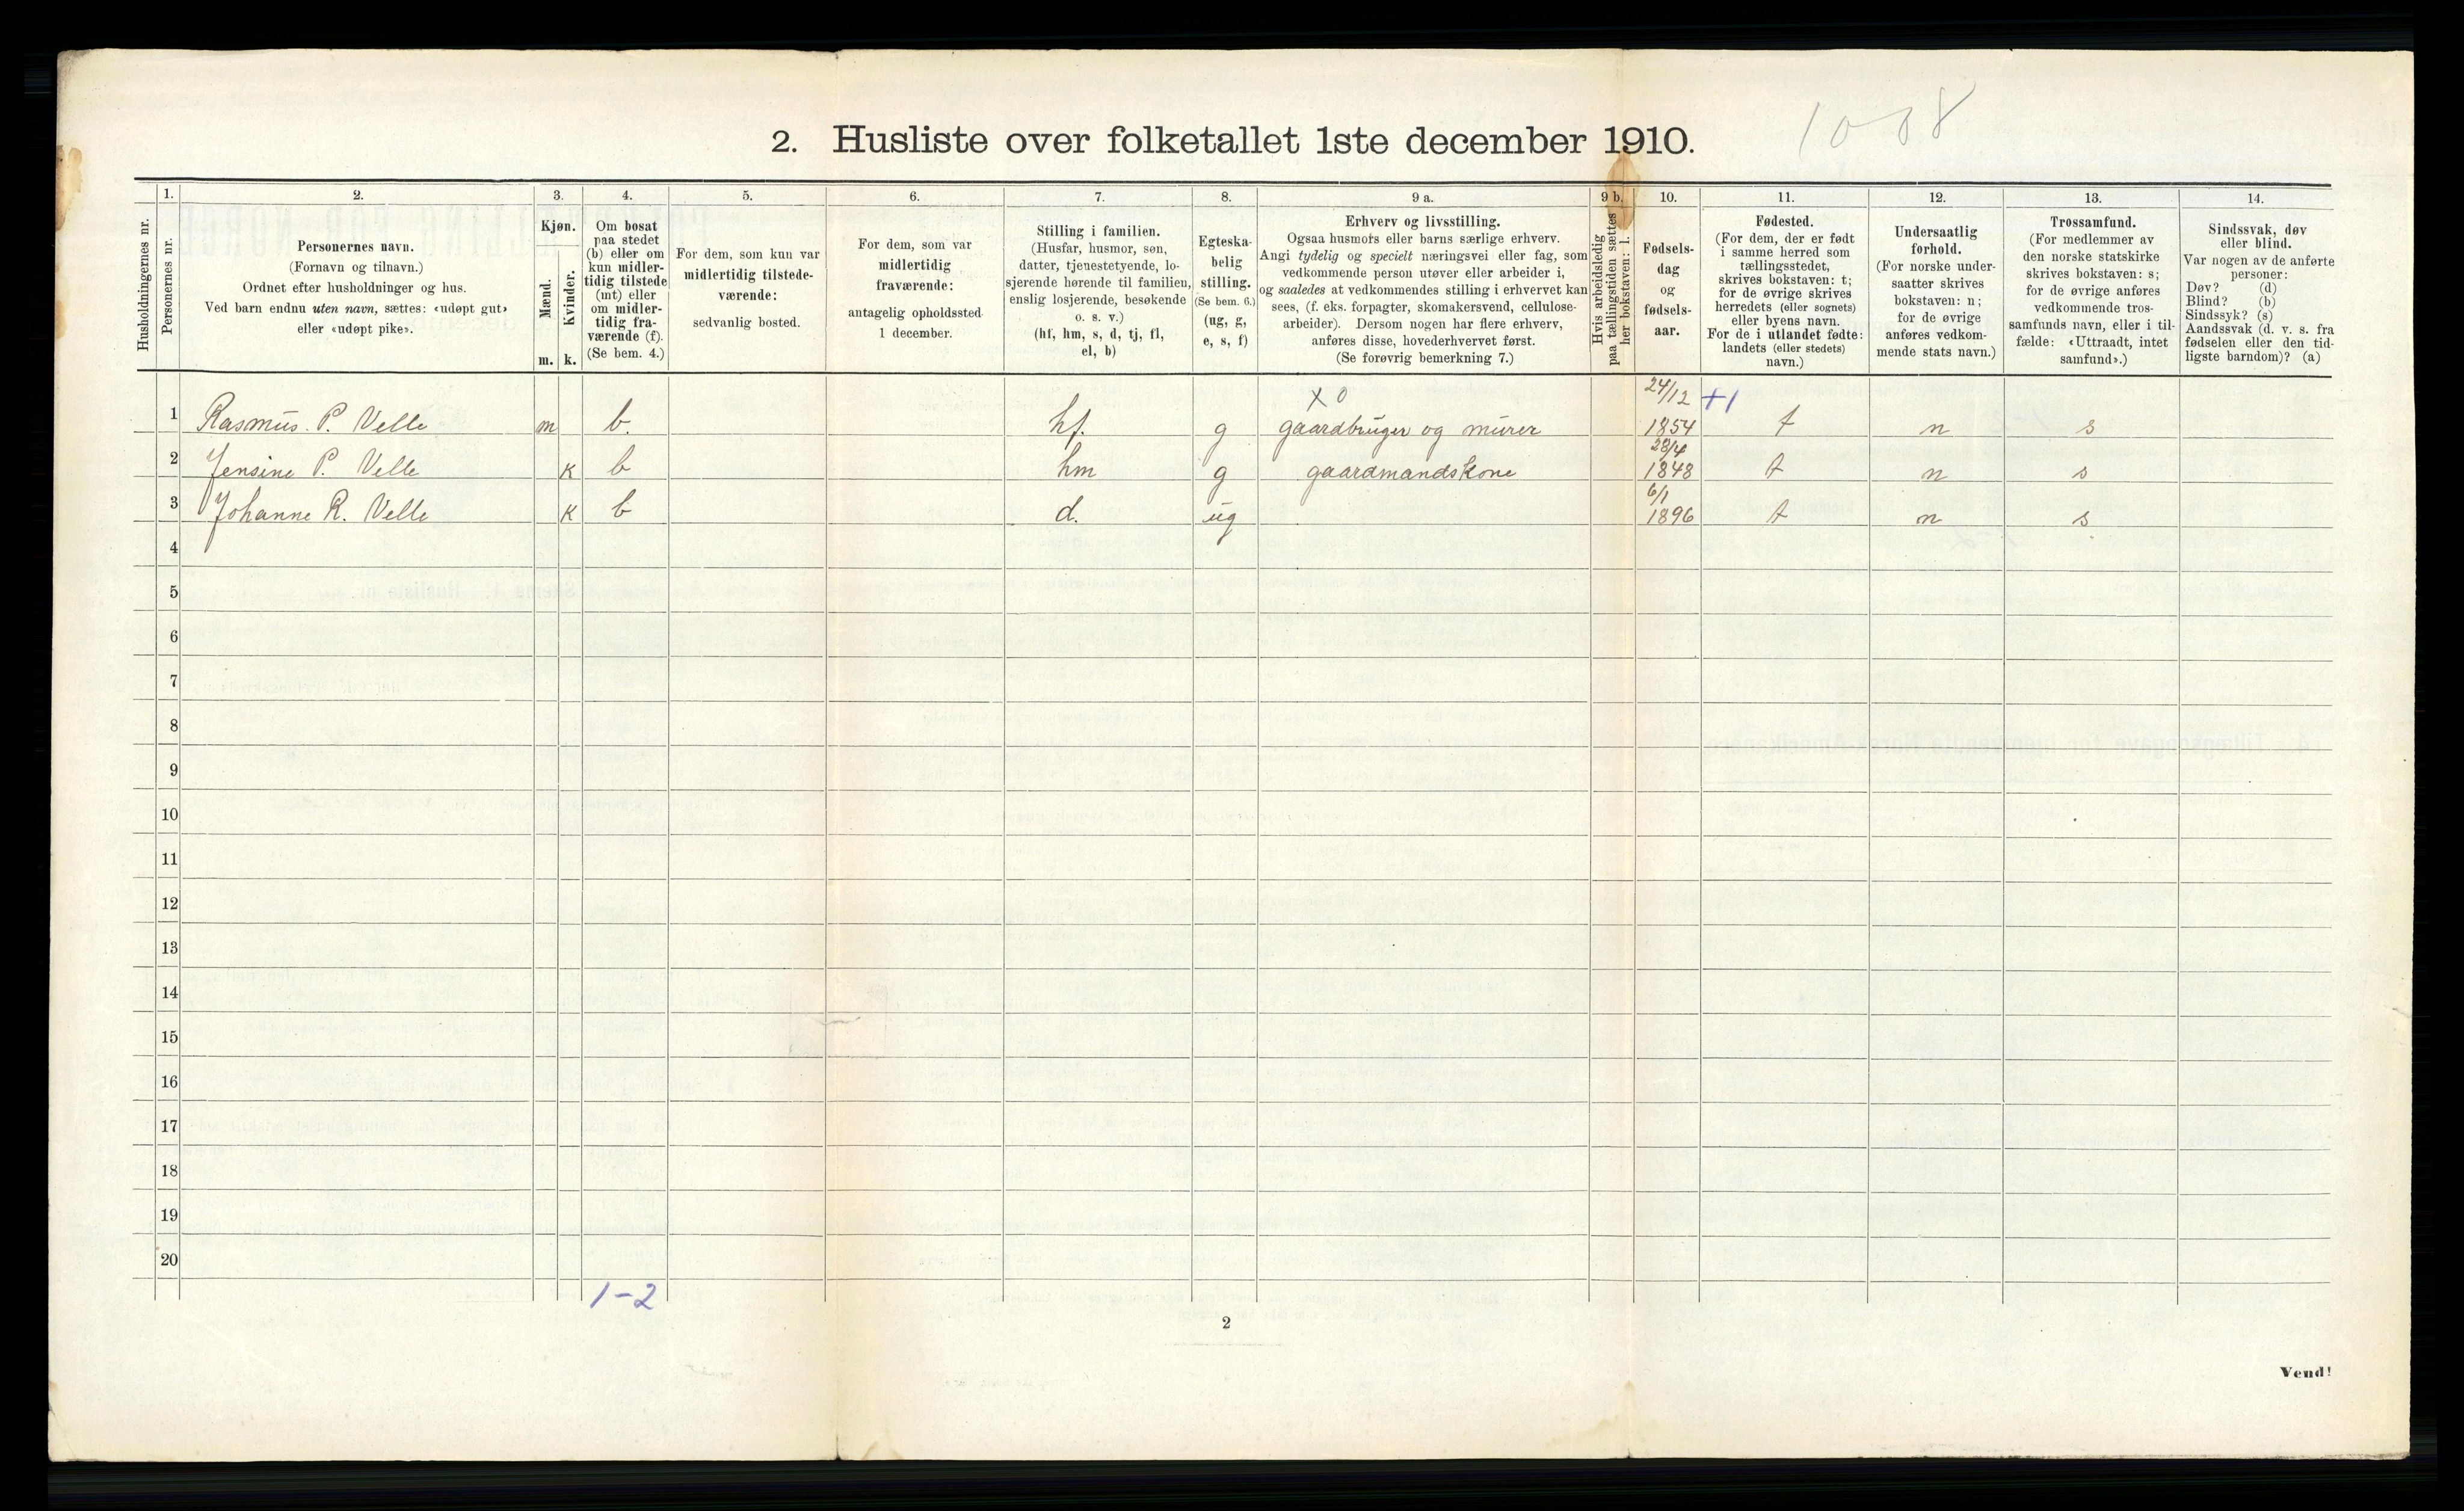 1008
2. Husliste over folketallet 1ste december 1910.
Husholdningernes nr.
1.
Personernes nr.
2.
Personernes navn.
(Fornavn og tilnavn.)
Ordnet efter husholdninger og hus.
Ved barn endnu uten navn, sættes: «udøpt gut»
eller «udøpt pike».
3.
Kjøn.
Mænd.
Kvinder.
m. k.
4.
Om bosat
paa stedet
(b) eller om
kun midler-
tidig tilstede
(mt) eller
om midler-
tidig fra-
værende (f).
(Se bem. 4.)
5.
For dem, som kun var
midlertidig tilstede-
værende:
sedvanlig bosted.
6.
For dem, som var
midlertidig
fraværende:
antagelig opholdssted
1 december.
7.
Stilling i familien.
(Husfar, husmor, søn,
datter, tjenestetyende, lo-
sjerende hørende til familien,
enslig losjerende, besøkende
o. s. v.)
(hf, hm, s, d, tj, fl,
el, b)
8.
Egteska-
belig
stilling.
(Se bem. 6.)
(ug, g,
e, s, f)
9 a.
Erhverv og livsstilling.
Ogsaa husmors eller barns særlige erhverv.
Angi tydelig og specielt næringsvei eller fag, som
vedkommende person utøver eller arbeider i,
og saaledes at vedkommendes stilling i erhvervet kan
sees, (f. eks. forpagter, skomakersvend, cellulose-
arbeider). Dersom nogen har flere erhverv,
anføres disse, hovederhvervet først.
(Se forøvrig bemerkning 7.)
9 b.
Hvis arbeidsledig
paa tællingstiden sættes
her bokstaven: l.
10.
Fødsels-
dag
og
fødsels-
aar.
11.
Fødested.
(For dem, der er født
i samme herred som
tællingsstedet,
skrives bokstaven: t;
for de øvrige skrives
herredets (eller sognets)
eller byens navn.
For de i utlandet fødte:
landets (eller stedets)
navn.)
12.
Undersaatlig
forhold.
(For norske under-
saatter skrives
bokstaven: n;
for de øvrige
anføres vedkom-
mende stats navn.)
13.
Trossamfund.
(For medlemmer av
den norske statskirke
skrives bokstaven: s;
for de øvrige anføres
vedkommende tros-
samfunds navn, eller i til-
fælde: «Uttraadt, intet
samfund».)
14.
Sindssvak, døv
eller blind.
Var nogen av de anførte
personer:
Døv? (d)
Blind? (b)
Sindssyk? (s)
Aandssvak (d. v. s. fra
fødselen eller den tid-
ligste barndom)? (a)
X 0 24/12 +1
1 Rasmus. P. Velle m b. hf. g gaardbruger og murer 1854 t n s
28/4
2 Jensine P. Velle k b hm g gaardmandskone 1848 t n s
6/1
3 Johanne R. Velle k b d. ug 1896 t n s
4
5
6
7
8
9
10
11
12
13
14
15
16
17
18
19
20
1-2
2
Vend!